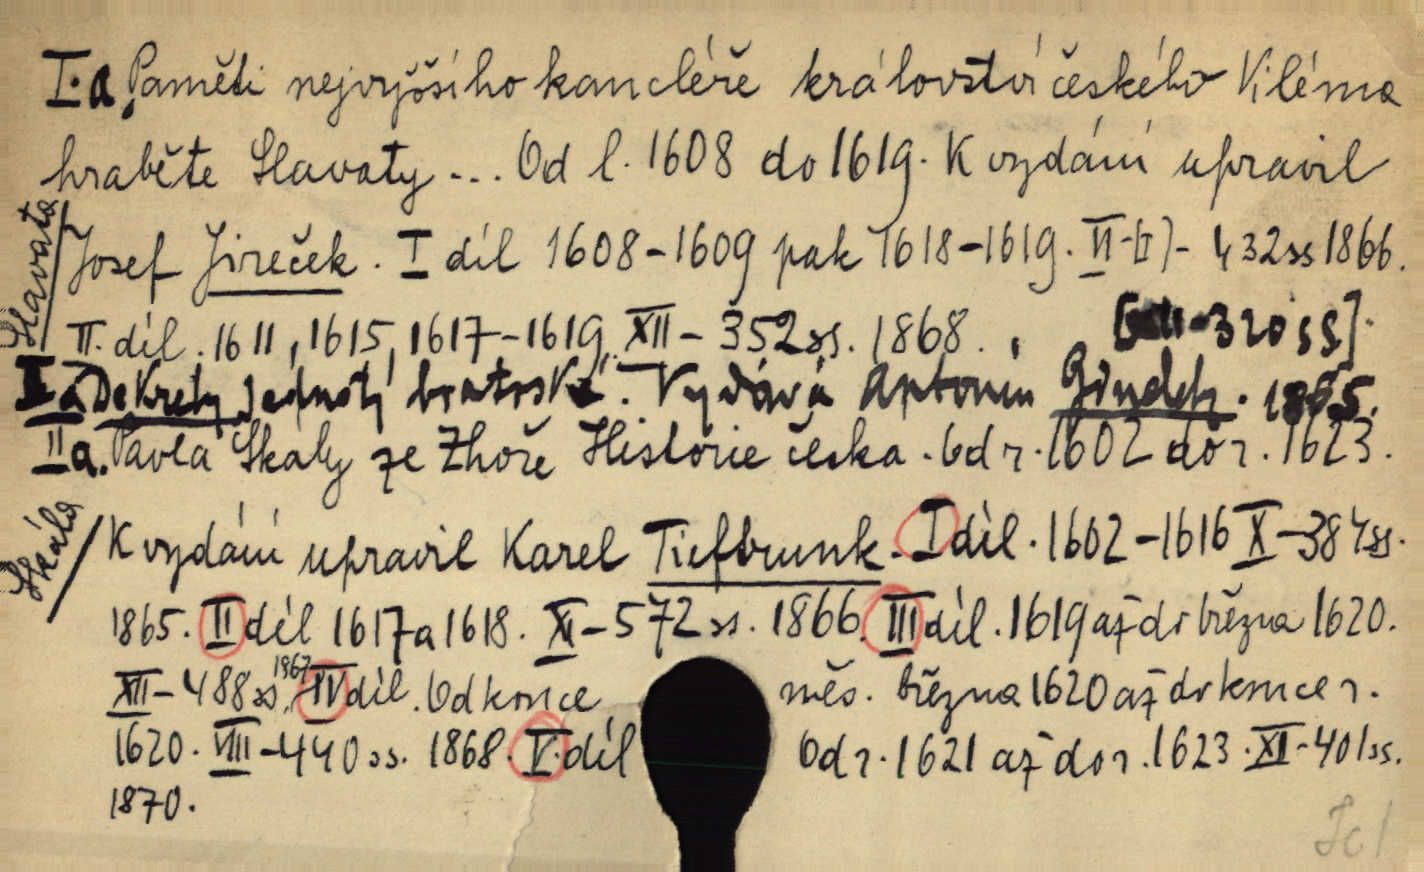 I.a. Paměti nejvyššího kancléře království českého Viléma
hraběte Slavaty ... Od l. 1608 do 1619. K vydání upravil
Slavata/
Josef Jireček. I díl 1608-1609 pak 1618-1619. VI-(I)- 432ss 1866.
II. díl. 1611, 1615, 1617-1619. XII- 352ss. 1868. 320 ss].
I a Dekrety Jednoty bratrské. Vydává Antonín Gindely. 1865.
II a. Pavla Skály ze Zhoře Historie česka. Od r. 1602 do r. 1623.
Skála/
K vydání upravil Karel Tieftrunk. I díl. 1602-1616 X-384ss.
1865. II díl 1617 a 1618. XI-572 ss. 1866. III díl. 1619 až do března 1620.
XII-488ss. 1867 IV díl. Od konce měs. března 1620 až do konce r.
1620. VIII-440ss. 1868. V. díl Od r. 1621 až do r. 1623. XI-401ss.
1870.